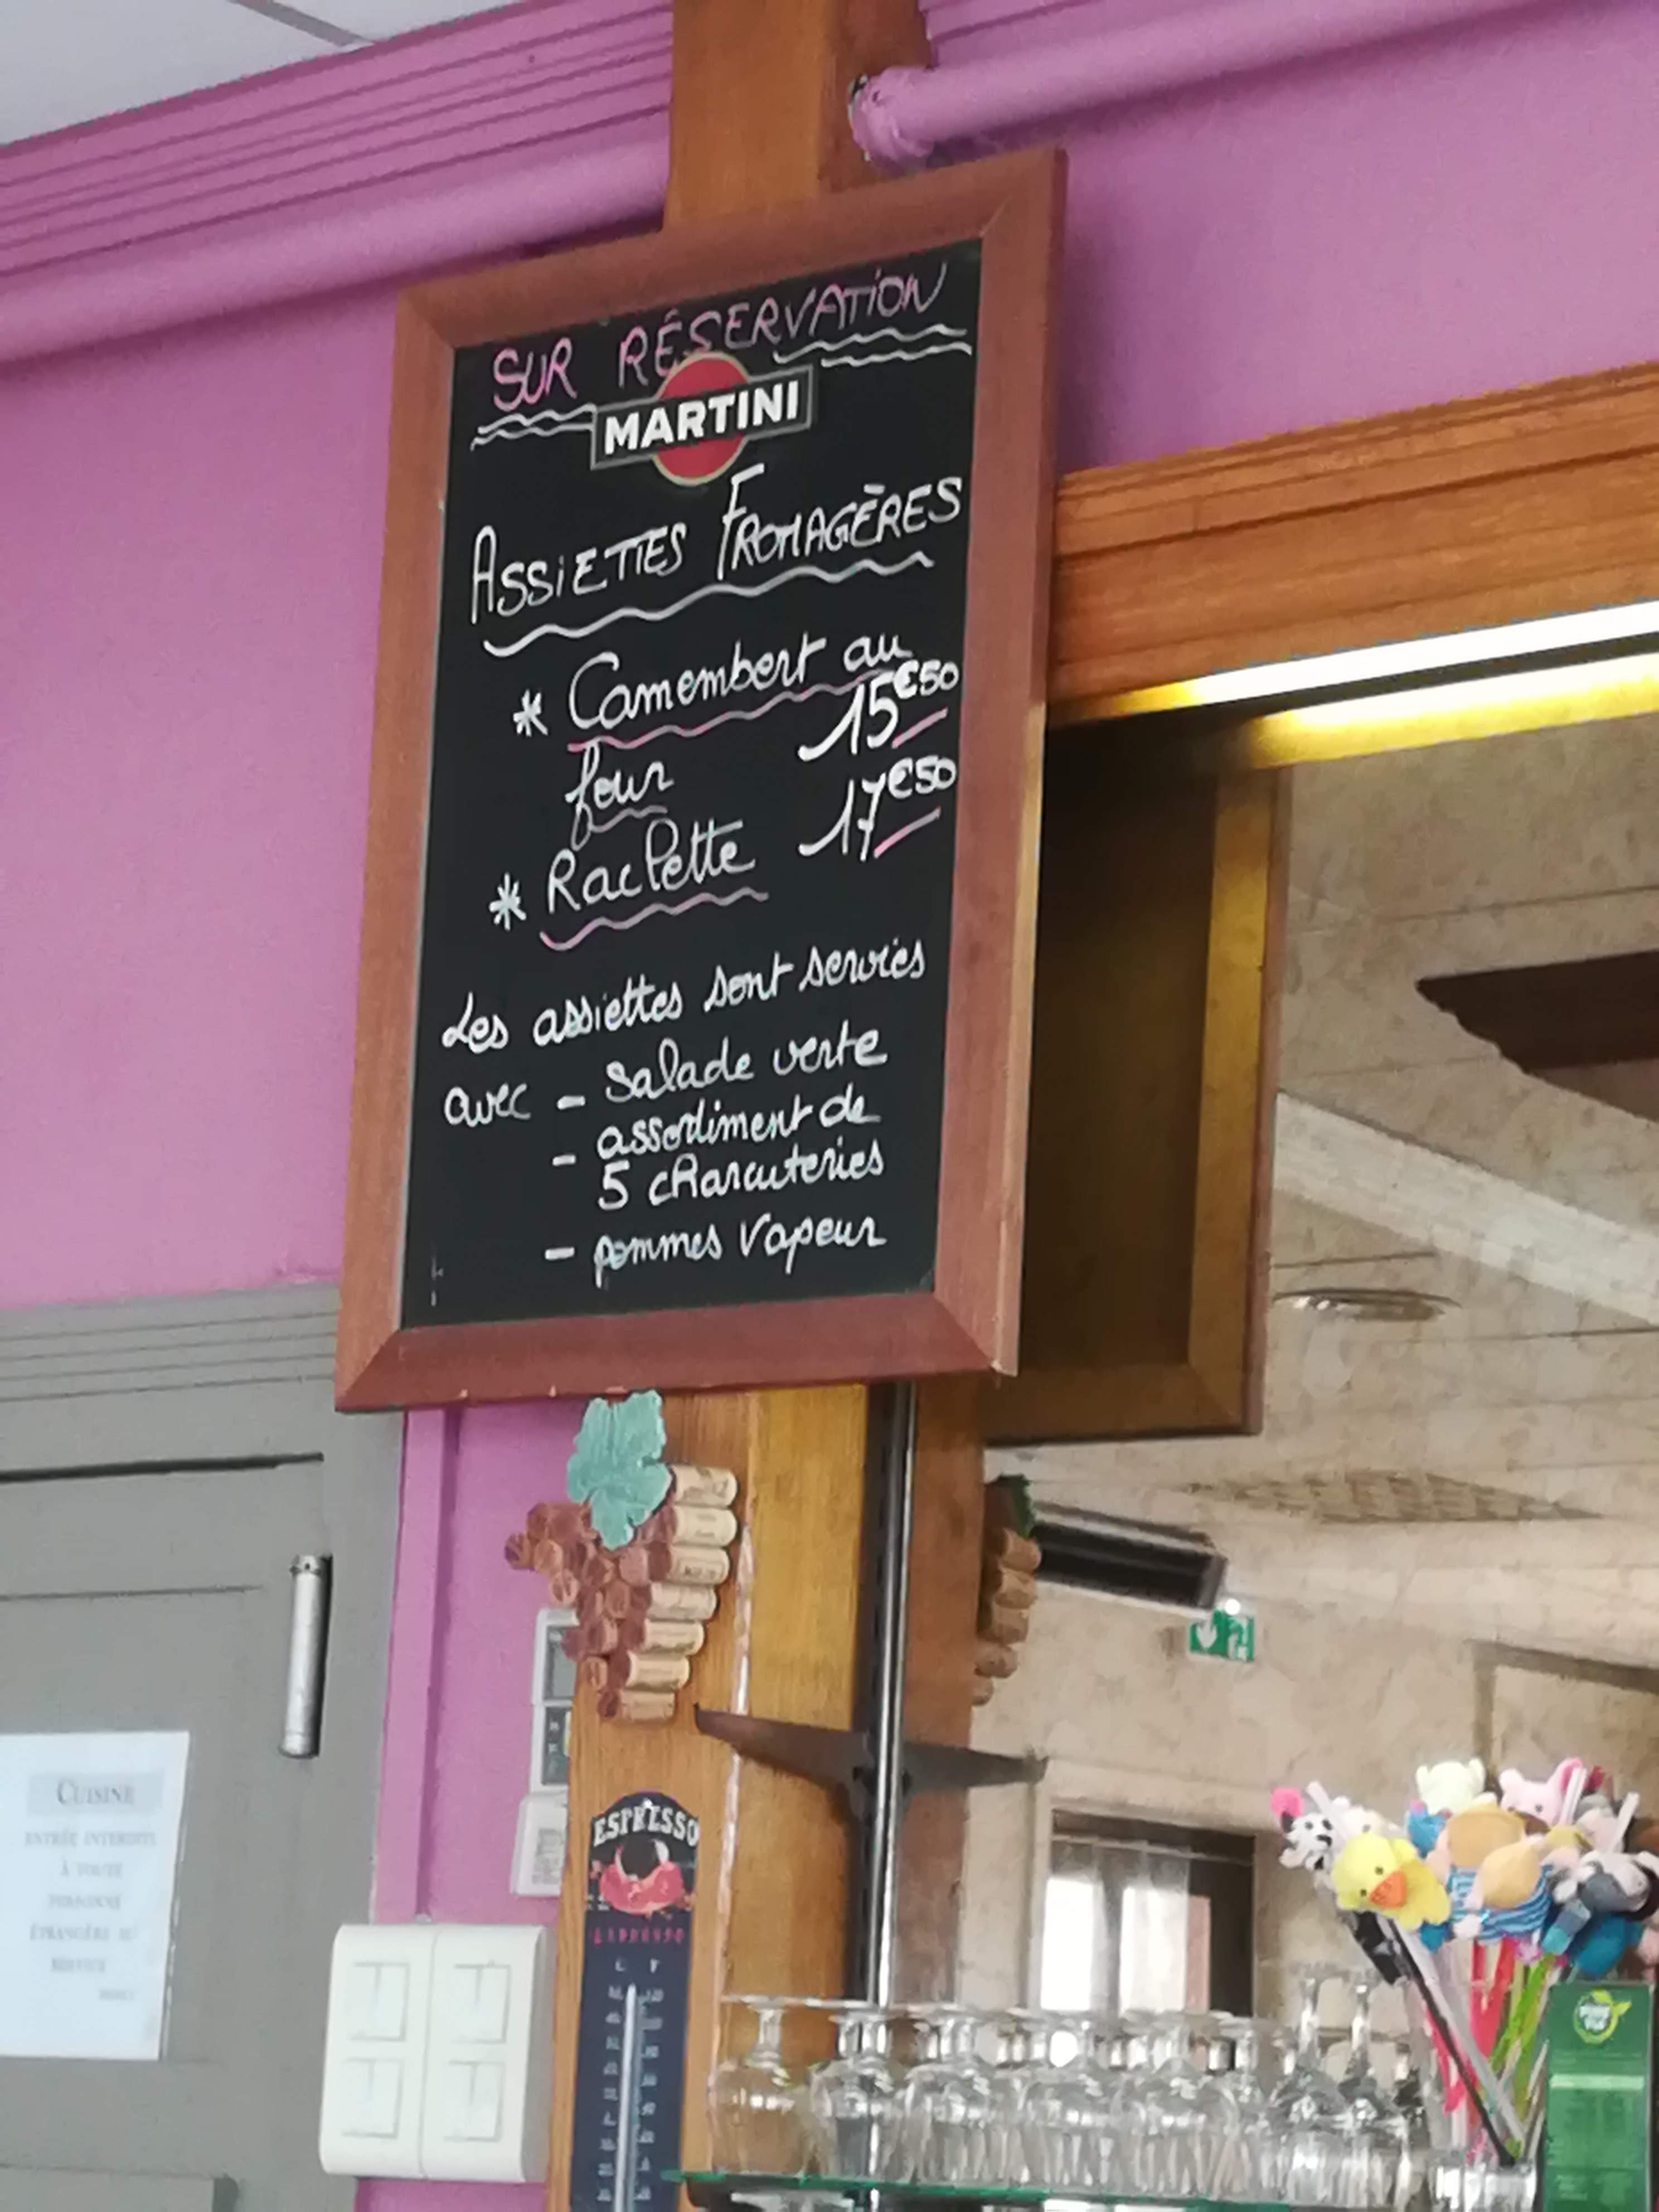 SUR RÉSERVATION
MARTINI
ASSIETTES FROMAGÈRES
* Camembert au
four 15€50
* Raclette 17€50
Les assiettes sont servies
avec - salade verte
- assortiment de
5 charcuteries
- pommes vapeur
CUISINE
ENTRÉE INTERDITE
À TOUTE
PERSONNE
ÉTRANGÈRE AU
SERVICE
MERCI
ESPRESSO
ESPRESSO
C F